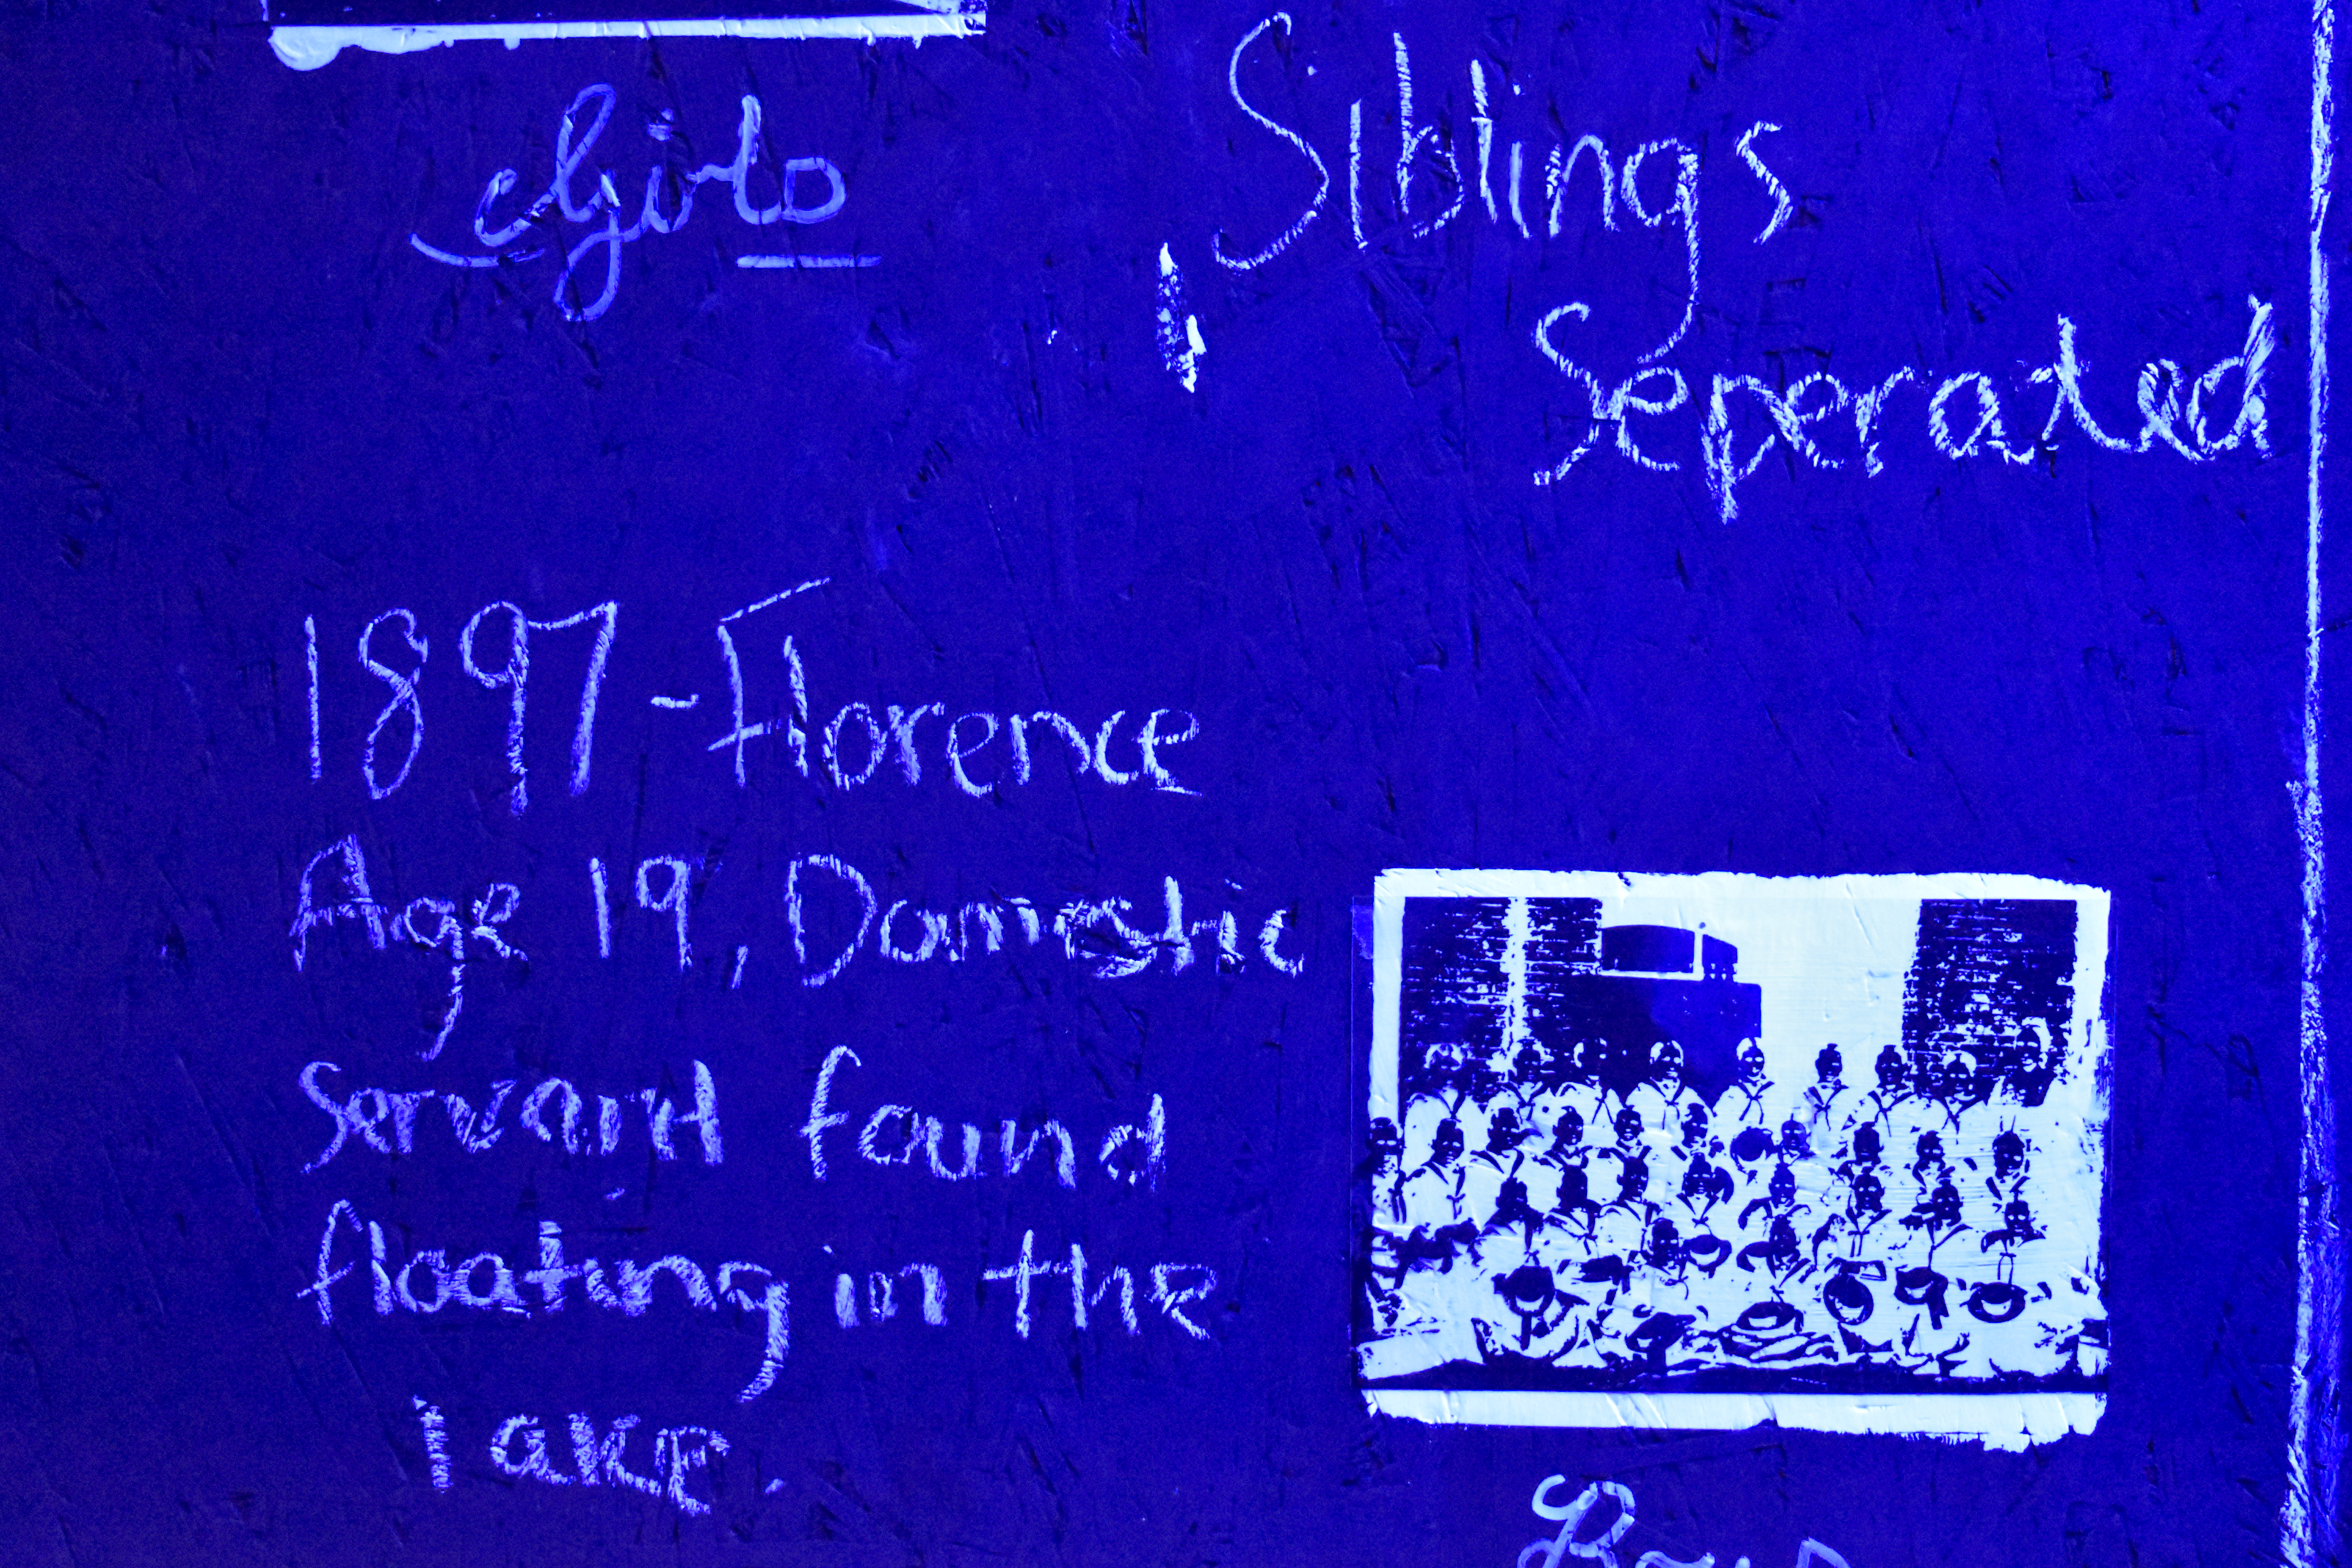 Girls
Siblings
Seperated
1897 - Florence
Age 19, Domestic
Servant found
floating in the
lake.
Boys